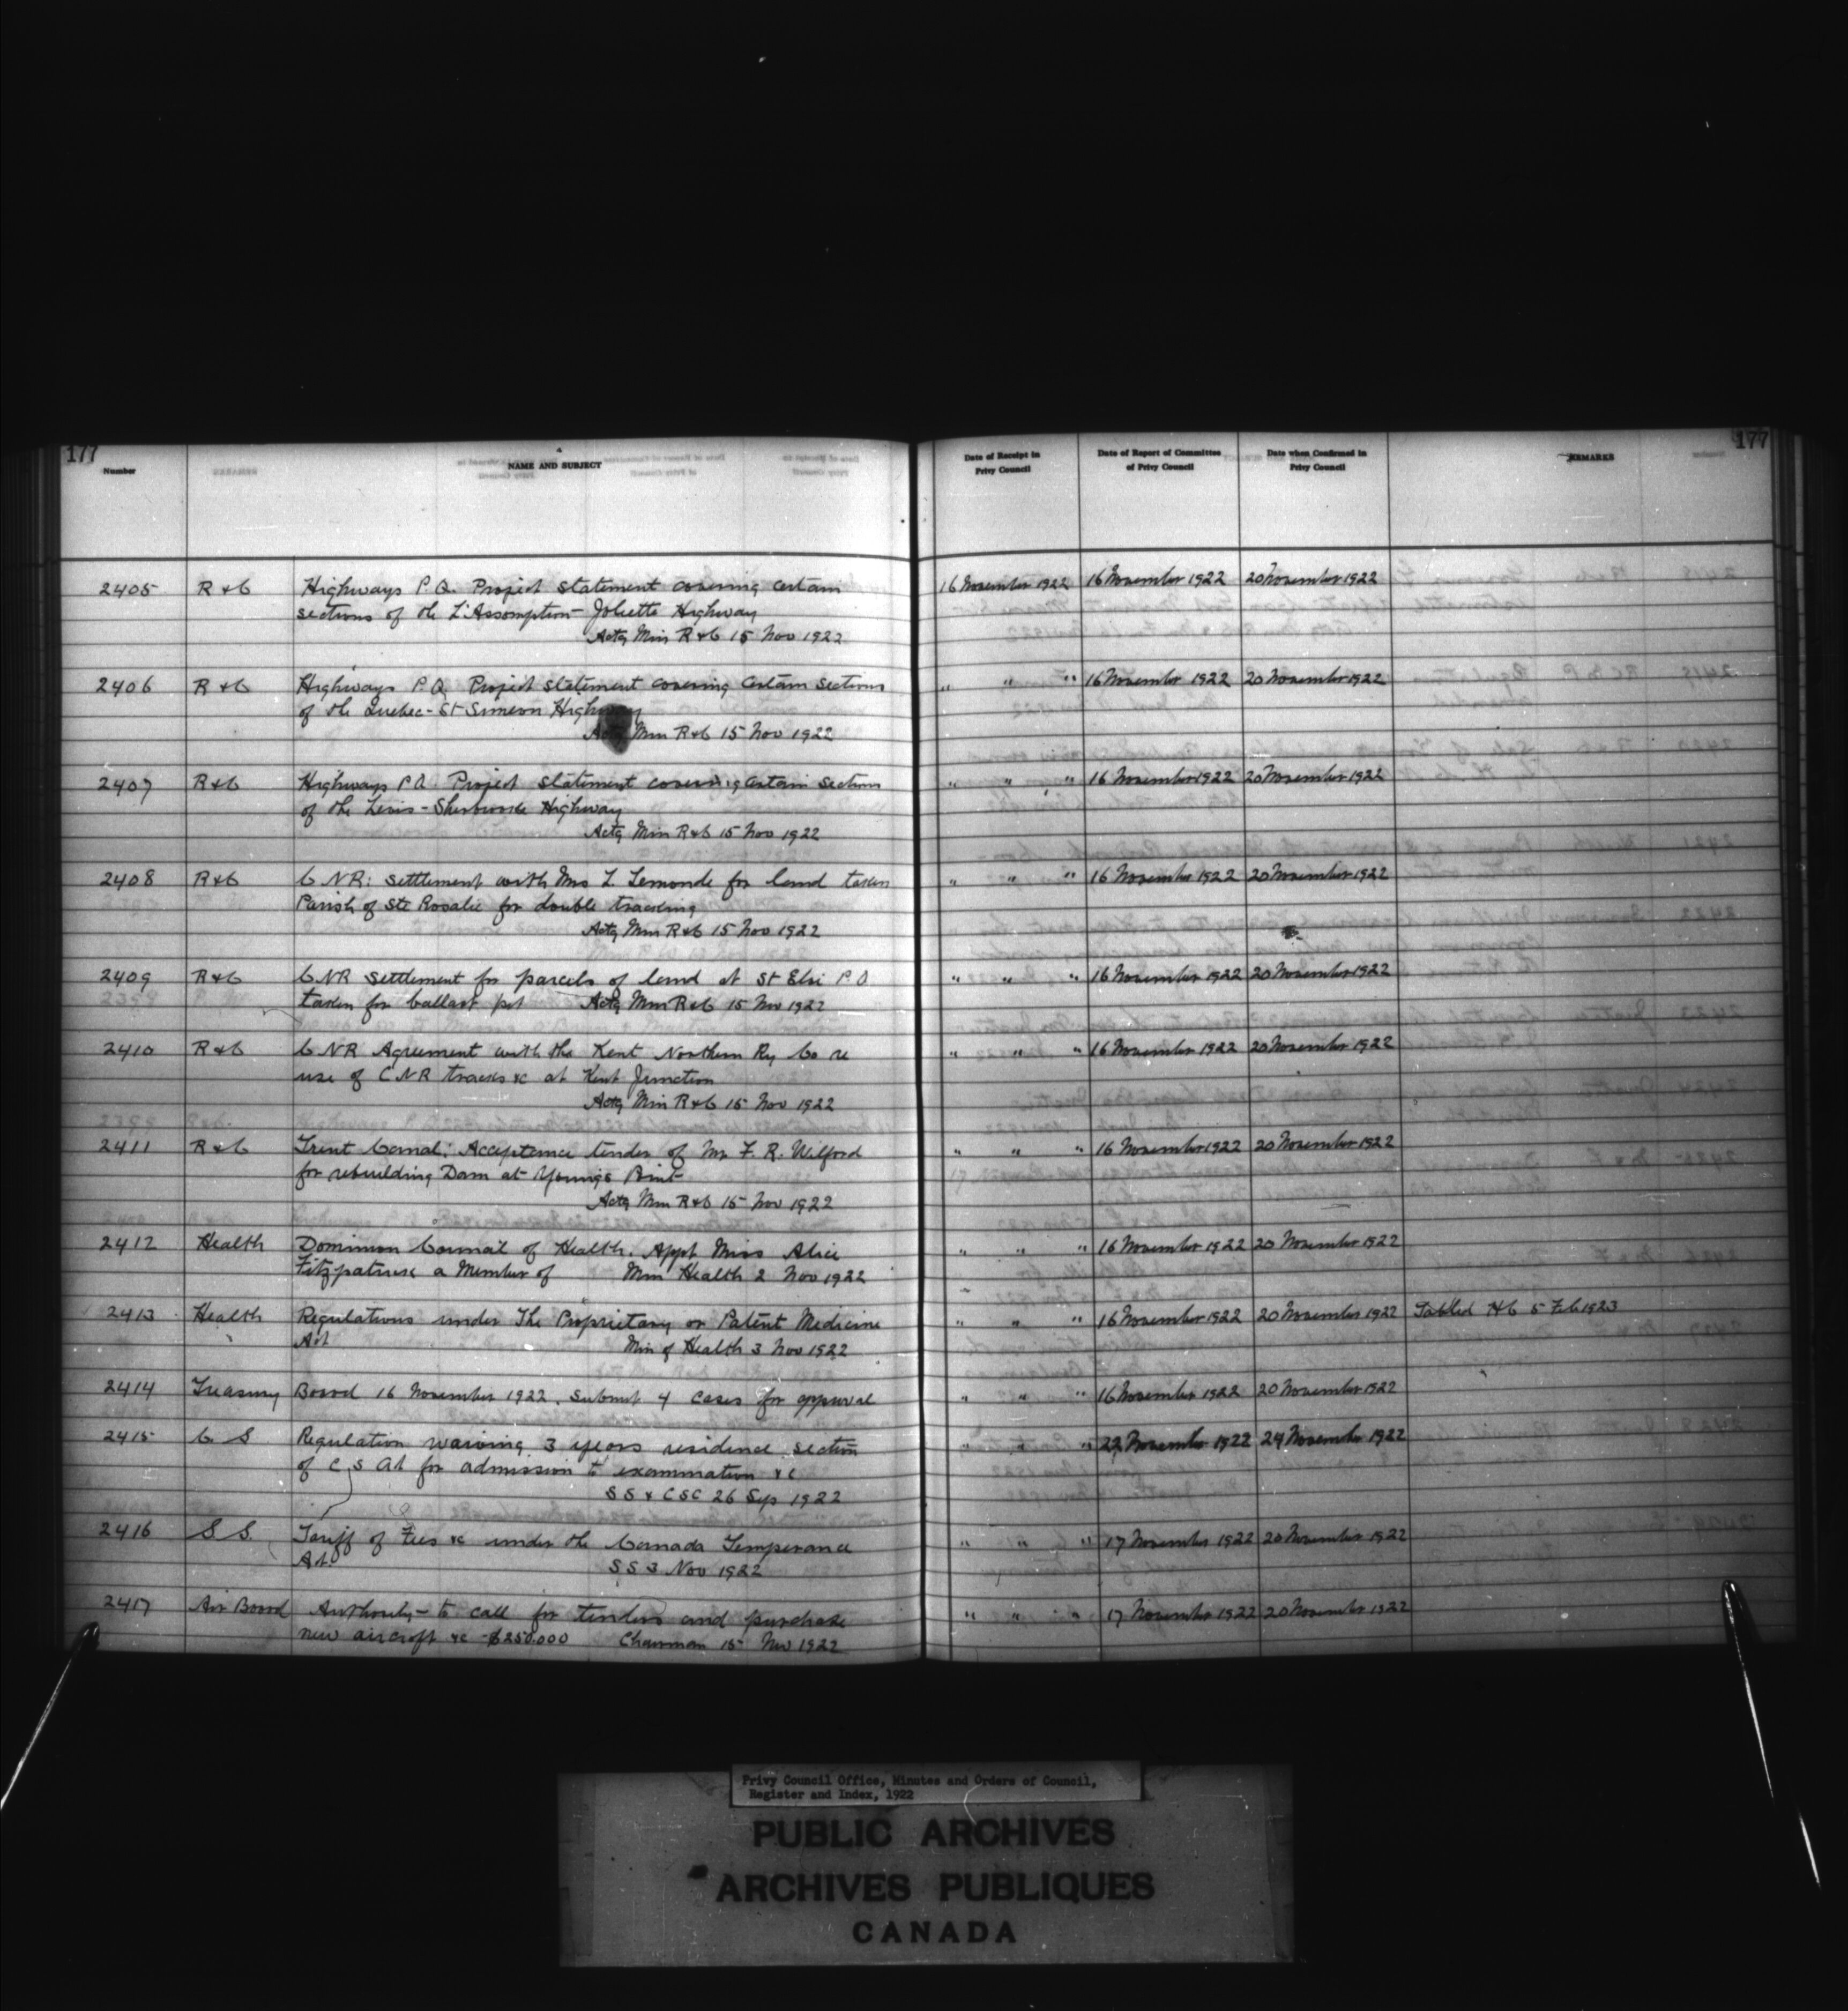 177
177
Number
NAME AND SUBJECT
Date of Receipt in Privy Council
Date of Report of Committee of Privy Council
Date when Confirmed in Privy Council
REMARKS
2405 R & C Highways P.Q. Project statement covering certain 16 November 1922 16 November 1922 20 November 1922
sections of the L'Assomption - Joliette Highway
Actg Min R & C 15 Nov 1922
2406 R & C Highways P.Q. Project statement covering certain sections " " " 16 November 1922 20 November 1922
of the Quebec - St Simeon Highway
Actg Min R & C 15 Nov 1922
2407 R & C Highways P.Q. Project statement covering certain sections " " " 16 November 1922 20 November 1922
of the Levis - Sherbrooke Highway
Actg Min R & C 15 Nov 1922
2408 R & C C N R: settlement with Mrs L Lemonde for land taken " " " 16 November 1922 20 November 1922
Parish of Ste Rosalie for double tracking
Actg Min R & C 15 Nov 1922
2409 R & C C N R settlement for parcels of land at St Eloi P Q " " " 16 November 1922 20 November 1922
taken for ballast pit Actg Min R & C 15 Nov 1922
2410 R & C C N R Agreement with the Kent Northern Ry Co re " " " 16 November 1922 20 November 1922
use of C N R tracks &c at Kent Junction
Actg Min R & C 15 Nov 1922
2411 R & C Trent Canal; Acceptance tender of Mr F. R. Wilford " " " 16 November 1922 20 November 1922
for rebuilding Dam at Youngs Point
Actg Min R & C 15 Nov 1922
2412 Health Dominion Council of Health. Appt Miss Alice " " " 16 November 1922 20 November 1922
Fitzpatrick a Member of Min Health 2 Nov 1922
2413 Health Regulations under The Proprietary or Patent Medicine " " " 16 November 1922 20 November 1922 Tabled H C 5 Feb 1923
Act Min of Health 3 Nov 1922
2414 Treasury Board 16 November 1922. Submit 4 cases for approval " " " 16 November 1922 20 November 1922
2415 C S Regulation waiving 3 years residence section " " " 22 November 1922 24 November 1922
of C S Act for admission to examination &c
S S & C S C 26 Sep 1922
2416 S S. Tariff of Fees &c under the Canada Temperance " " " 17 November 1922 20 November 1922
Act S S 3 Nov 1922
2417 Air Board Authority to call for tenders and purchase " " " 17 November 1922 20 November 1922
new aircraft &c $250.000 Chairman 15 Nov 1922
Privy Council Office, Minutes and Orders of Council,
Register and Index, 1922
PUBLIC ARCHIVES
ARCHIVES PUBLIQUES
CANADA